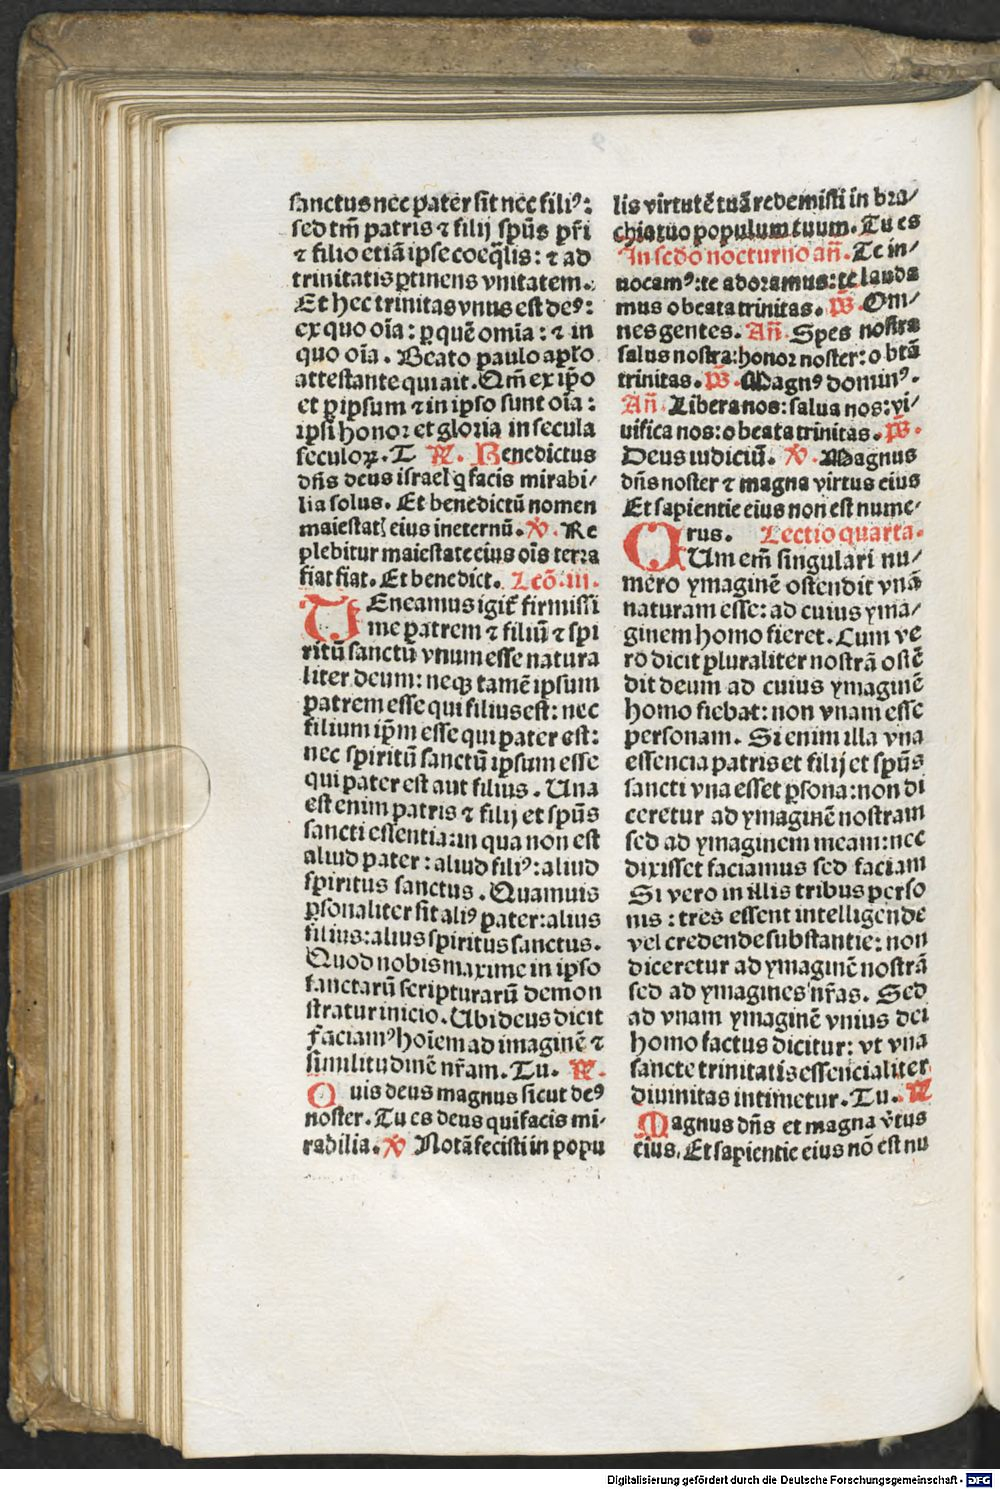 sanctus nec pater sit nec fili⁹:
sed tm̄ patris ⁊ filij spūs pr̄i
⁊ filio etiā ipse coeq̄lis: ⁊ ad
trinitatis ꝑtinens vnitatem.
Et hec trinitas vnus est de⁹:
ex quo oīa: ꝑ quē omīa: ⁊ in
quo oīa. Beato paulo apƚo
attestante qui ait. Qm̄ ex ip̄o
et ꝑ ipsum ⁊ in ipso sunt oīa:
ipsi honor et gloria in secula
seculoꝝ. T ℟. Benedictus
dn̄s deus israel q̇ facis mirabi⸗
lia solus. Et benedictū nomen
maiestatꝭ eius ineternū. ℣. Re
plebitur maiestate eius oīs terra
fiat fiat. Et benedict. Lcō.iii.
TEneamus igit̄ firmissi
me patrem ⁊ filiū ⁊ spi
ritū sanctū vnum esse natura
liter deum: neqꝫ tamē ipsum
patrem esse qui filius est: nec
filium ip̄m esse qui pater est:
nec spiritū sanctū ipsum esse
qui pater est aut filius. Una
est enim patris ⁊ filij et spūs
sancti essentia: in qua non est
aliud pater: aliud fili⁹: aliud
spiritus sanctus. Quamuis
ꝑsonaliter sit ali⁹ pater: alius
filius: alius spiritus sanctus.
Quod nobis maxime in ipso
sanctarū scripturarū demon
stratur inicio. Ubi deus dicit
Faciam⁹ hoīem ad imaginē ⁊
similitudinē nr̄am. Tu. ℟.
Quis deus magnus sicut de⁹
noster. Tu es deus qui facis mi⸗
rabilia. ℣ Notā fecisti in popu
lis virtutē tuā redemisti in bra⸗
chio tuo populum tuum. Tu es
In scdo nocturno an̄. Te in⸗
uocam⁹: te adoramus: te lauda
mus o beata trinitas. p̄s. Om⸗
nes gentes. An̄. Spes nostra
salus nostra: honor noster: o btā
trinitas. p̄s. Magn⁹ domin⁹.
An̄. Libera nos: salua nos: vi⸗
uifica nos: o beata trinitas. p̄s.
Deus iudiciū. ℣. Magnus
dn̄s noster ⁊ magna virtus eius
Et sapientie eius non est nume⸗
rus. Lectio quarta.
CUm em̄ singulari nu⸗
mero ymaginē ostendit vnā
naturam esse: ad cuius yma⸗
ginem homo fieret. Cum ve
ro dicit pluraliter nostrā ostē
dit deum ad cuius ymaginē
homo fiebat: non vnam esse
personam. Si enim illa vna
essencia patris et filij et spūs
sancti vna esset ꝑsona: non di
ceretur ad ymaginē nostram
sed ad ymaginem meam: nec
dixisset faciamus sed faciam
Si vero in illis tribus perso
nis: tres essent intelligende
vel credende substantie: non
diceretur ad ymaginē nostrā
sed ad ymagines nr̄as. Sed
ad vnam ymaginē vnius dei
homo factus dicitur: vt vna
sancte trinitatis essencialiter
diuinitas intimetur. Tu. ℟
Magnus dn̄s et magna v̄tus
eius. Et sapientie eius nō est nu
Digitalisierung gefördert durch die Deutsche Forschungsgemeinschaft - DFG